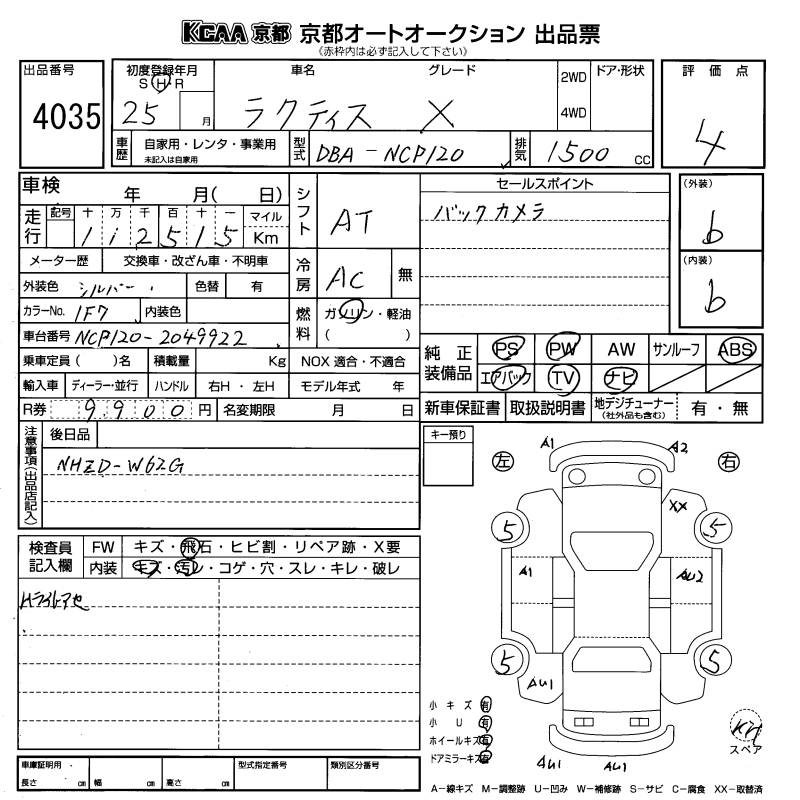 KCAA 京都 京都オートオークション 出品票
(赤枠内は必ず記入して下さい)
出品番号
4035
初度登録年月
S H R
25 月
車名 グレード
ラクティス X
2WD
4WD
ドア・形状
評価点
4
車歴
自家用・レンタ・事業用
未記入は自家用
型式
DBA-NCP120
排気
1500 CC
車検 年 月( 日)
走行
記号 十 万 千 百 十 一 マイル
1 1 2 5 1 5 Km
メーター歴 交換車・改ざん車・不明車
外装色 シルバー 色替 有
カラーNo. 1F7 内装色
車台番号 NCP120-2049922
乗車定員( )名 積載量 Kg NOX 適合・不適合
輸入車 ディーラー・並行 ハンドル 右H・左H モデル年式 年
R券 9900 円 名変期限 月 日
シフト AT
冷房 AC 無
燃料 ガソリン・軽油
( )
セールスポイント
バックカメラ
(外装)
b
(内装)
b
純正装備品
PS PW AW サンルーフ ABS
エアバック TV ナビ
新車保証書 取扱説明書 地デジチューナー 有・無
(社外品も含む)
注意事項(出品店記入)
後日品
NHZD-W62G
キー預り
検査員記入欄
FW キズ・飛石・ヒビ割・リペア跡・X要
内装 キズ・汚レ・コゲ・穴・スレ・キレ・破レ
Hライトアセ
左 右
A1 A2
XX
5 5
A1 AU2
5 5
AU1
AU1 AU1
小キズ 有
小U 有
ホイールキズ 有
ドアミラーキズ 有
スペア
車庫証明用・
長さ cm 幅 cm 高さ cm
型式指定番号 類別区分番号
A−線キズ M−調整跡 U−凹み W−補修跡 S−サビ C−腐食 XX−取替済